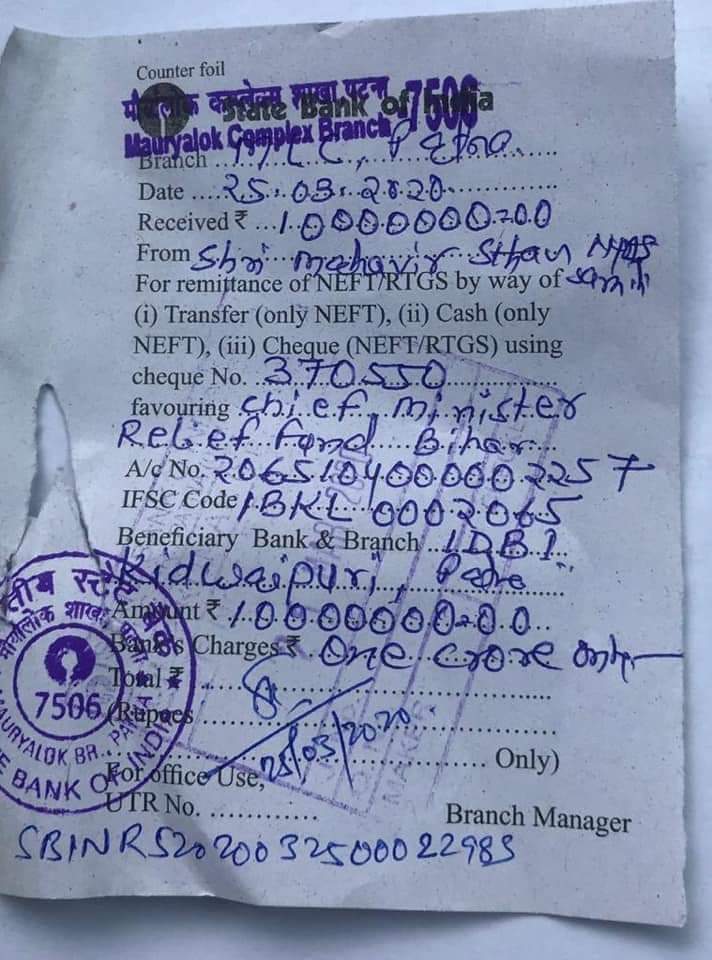 Counter foil
मौर्यालोक कम्प्लेक्स शाखा पटना 7506
State Bank of India
Mauryalok Complex Branch
Branch M.L.C., Patna
Date 25.03.2020
Received ₹ 10000000=00
From Shri Mahavir Sthan Nyas
For remittance of NEFT/RTGS by way of Samiti
(i) Transfer (only NEFT), (ii) Cash (only
NEFT), (iii) Cheque (NEFT/RTGS) using
cheque No. 370550
favouring Chief Minister
Relief Fund Bihar
A/c No. 2065104000002257
IFSC Code IBKL 0002065
Beneficiary Bank & Branch IDBI
Kidwaipuri,
Amount ₹ 10000000=00
Bank's Charges ₹ One crore only
Total ₹
(Rupees
25/03/2020
Only)
For office Use,
UTR No. ............
Branch Manager
SBINR52020032500022983
7506
MAURYALOK BR.
BANK OF INDIA
MAKER